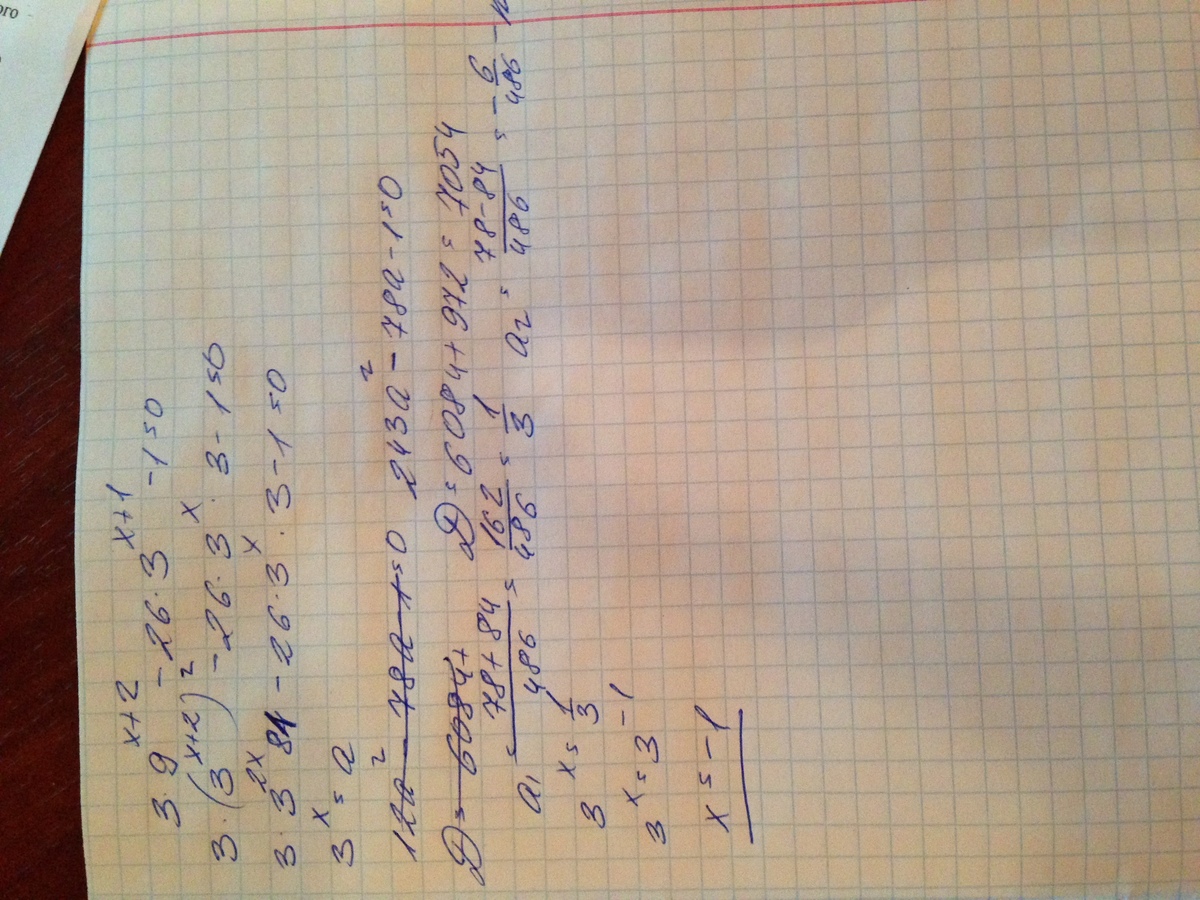 3·9^(x+2) - 26·3^(x+1) - 1 = 0
3·(3^(x+2))^2 - 26·3^x·3 - 1 = 0
3·3^(2x) 81 - 26·3^x·3 - 1 = 0
3^x = a
12a^2 - 78a - 1 = 0 243a^2 - 78a - 1 = 0
D = 6084 + D = 6084 + 972 = 7054
a₁ = (78+84)/486 = 162/486 = 1/3 a₂ = (78-84)/486 = -6/486 -
3^x = 1/3
3^x = 3^(-1)
x = -1
ого -